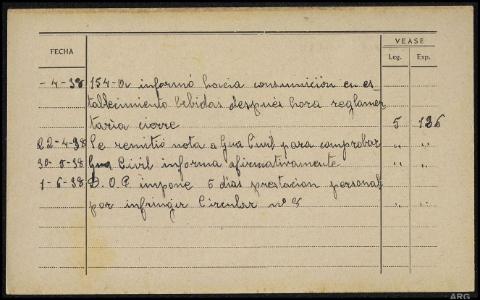 VEASE
FECHA Leg. Exp.
- -4-38 154-Or informó hacia consumición en es_
tablecimiento bebidas después hora reglamen
taria cierre 5 136
22-4-38 Se remitió nota a Gua Civil para comprobar " "
30-5-38 Gua Civil informa afirmativamente " "
1-6-38 D.O.P. impone 5 días prestacion personal
por infringir Circular nº 5 " "
ARG